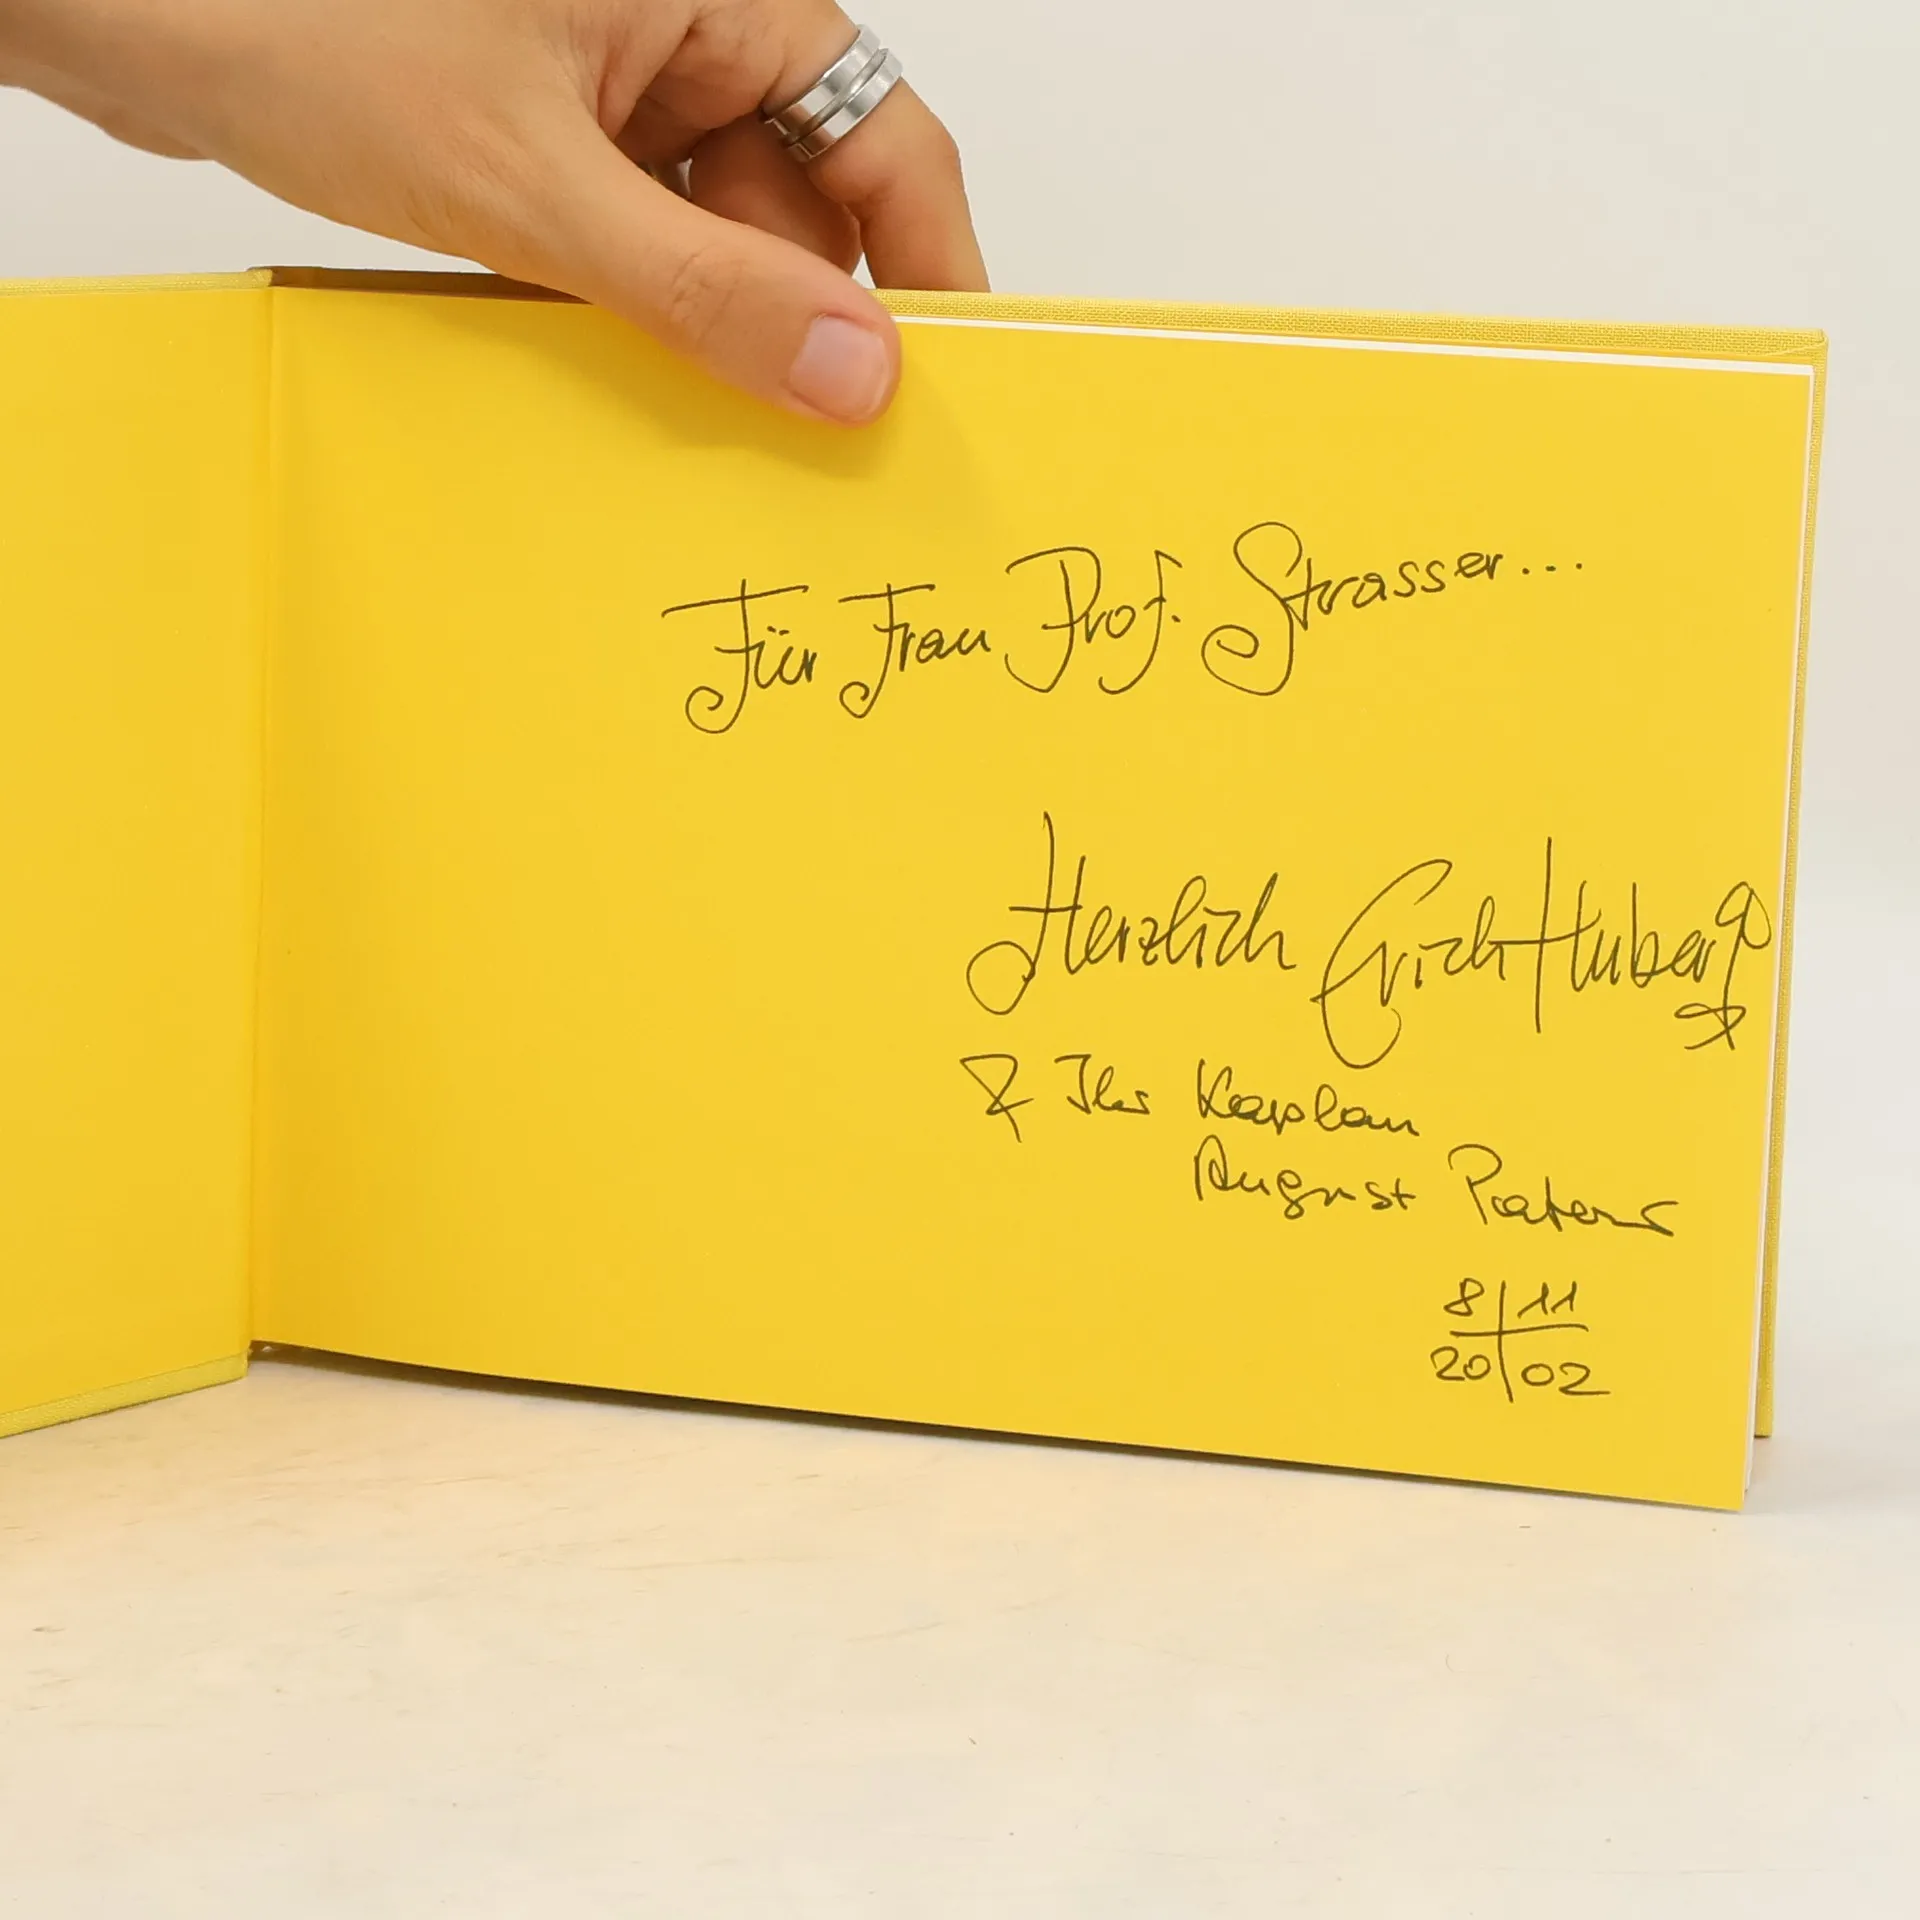 Für Frau Prof. Strasser...
Herzlich Erich Huber
& Ihr Kaplan
August Paterno
8 | 11
20 | 02